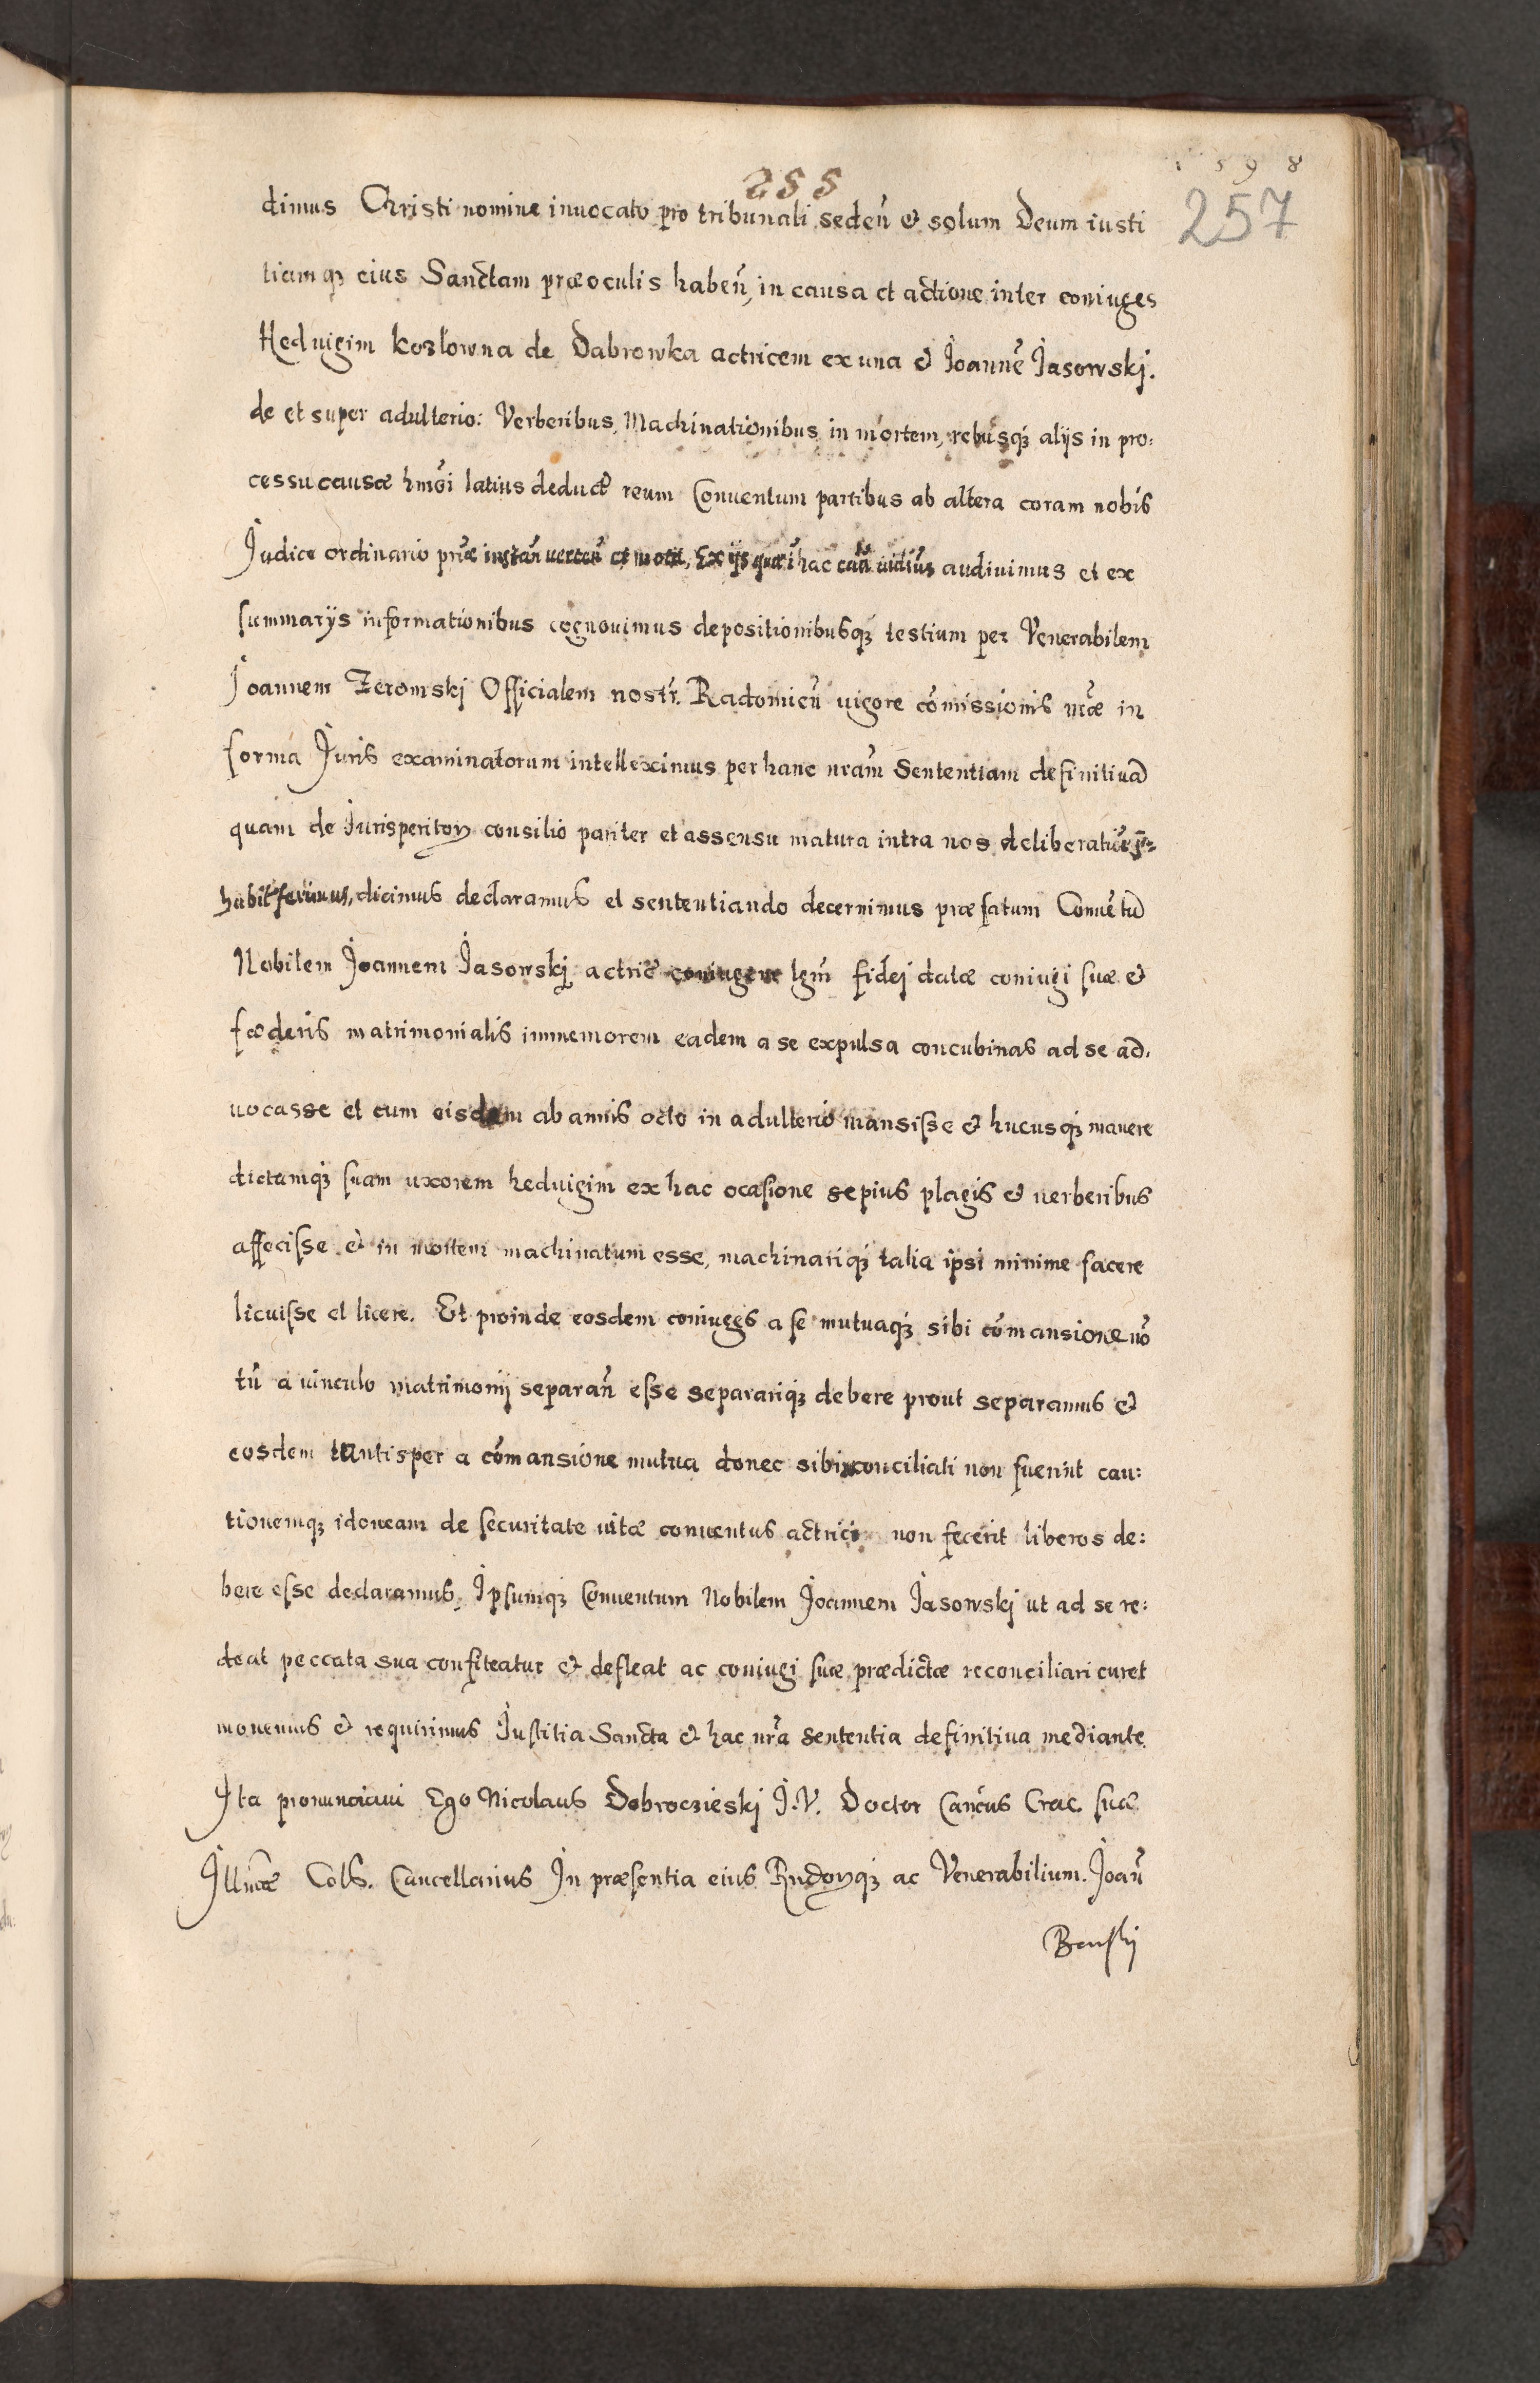 1598
255
257
dimus Christi nomine inuocato pro tribunali sedeñ & solum Deum iusti
tiamq3 eius Sanctam præoculis habeñ, in causa et actione inter coniuges
Heduigim kozlowna de Dabrowka actricem ex una & Joannē Jasowskj.
de et super adulterio: Verberibus, Machinationibus in mortem, rebusq3 alijs in pro:
cessu causæ hmōi latius deduct̃ reum Conuentum partibus ab altera coram nobis
Judice ordinario prīæ instañ uerteñ et mot̃, Ex ijs quæ ī hac caũ uidimus audiuimus et ex
summarijs informationibus cognouimus depositionibusq3 testium per Venerabilem
Joannem Zeromskj Officialem nostr̃. Radomieñ uigore cōmissionis nr̃æ in
forma Juris examinatorum intelleximus per hanc nram̃ Sententiam definitiuā
quam de Jurisperitoꝝ consilio pariter et assensu matura intra nos deliberatiōe
habit̃ ferimus, dicimus declaramus et sententiando decernimus præfatum Conuētū
Nobilem Joannem Jasowskj actric̃ coniugem lgm̃ fidej datæ coniugi suæ &
fœderis matrimonialis immemorem eadem a se expulsa concubinas ad se ad.
uocasse et cum eisdem ab annis octo in adulterio mansisse & hucusq3 manere
dictamq3 suam uxorem heduigim ex hac ocasione sepius plagis & uerberibus
affecisse & in mortem machinatum esse, machinariq3 talia ipsi minime facere
licuisse et licere. Et proinde eosdem coniuges a se mutuaq3 sibi cōmansione nō
tñ a uinculo matrimonij separañ esse separariq3 debere prout separamus &
eosdem tantisper a cōmansione mutua donec sibi reconciliati non fuerint cau:
tionemq3 idoneam de securitate uitæ conuentus actrici non fecerit liberos de:
bere esse declaramus, Ipsumq3 Conuentum Nobilem Joannem Jasowskj ut ad se re:
deat peccata sua confiteatur & defleat ac coniugi suæ prædictæ reconciliari curet
monemus & requirimus Justitia Sancta & hac nrã sententia definitiua mediante
Ita pronunciaui Ego Nicolaus Dobroczieskj J. V. Doctor Cancus Crac. suæ
Illmæ Cols. Cancellarius In præsentia eius Rndoꝝq3 ac Venerabilium. Joañ
Benskj